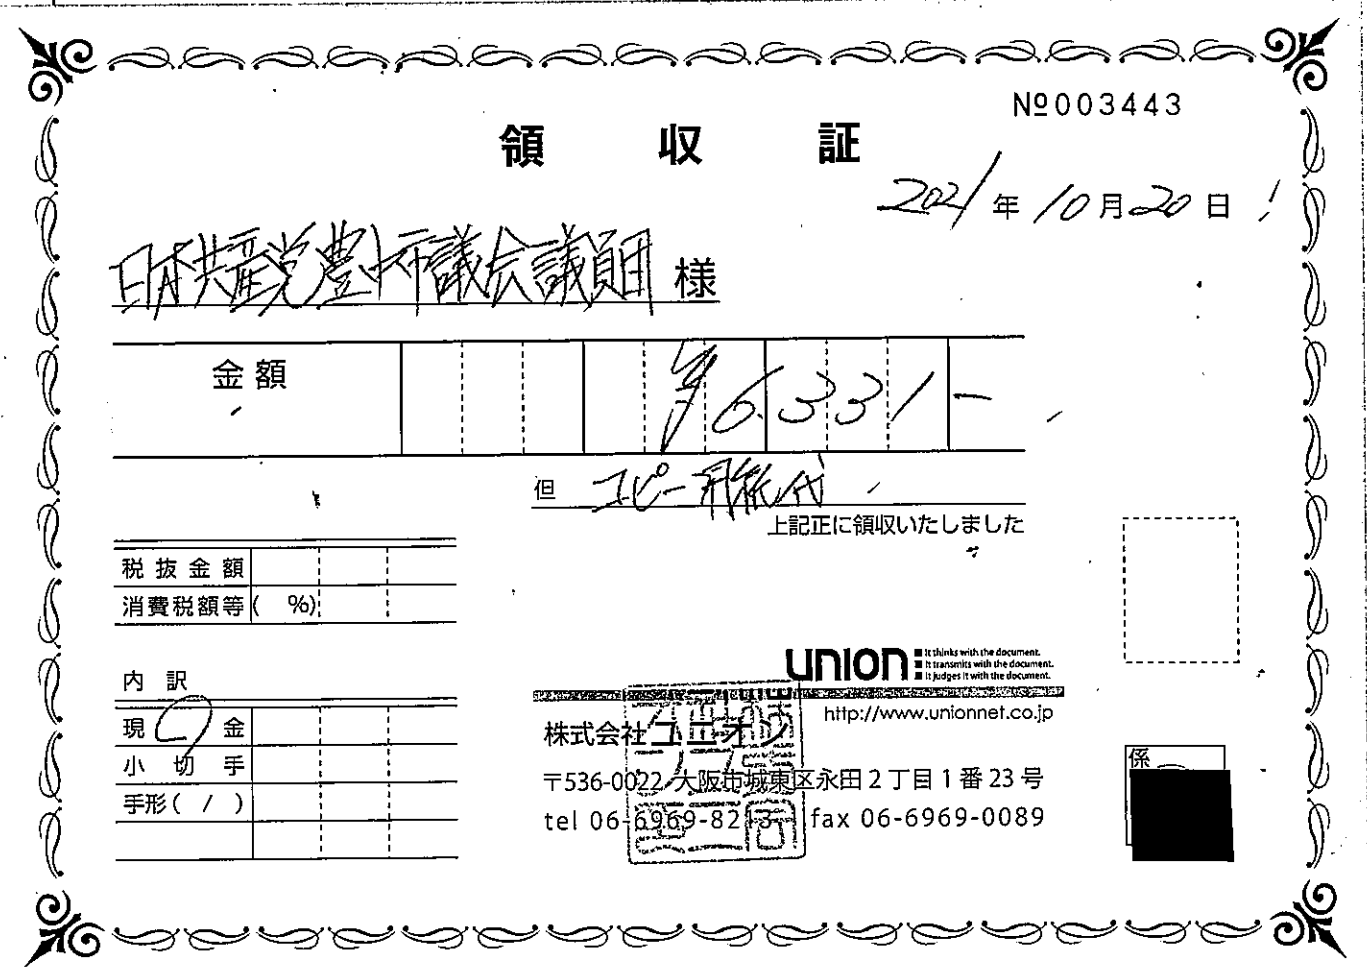 №003443
領収証
2021年10月20日
日本共産党豊中市議会議員団 様
金額 ¥6,331-
但 コピー用紙代
上記正に領収いたしました
税抜金額
消費税額等( %)
内訳
現金
小切手
手形( / )
union
It thinks with the document.
It transmits with the document.
It judges it with the document.
http://www.unionnet.co.jp
株式会社ユニオン
〒536-0022 大阪市城東区永田2丁目1番23号
tel 06-6969-8213 fax 06-6969-0089
係